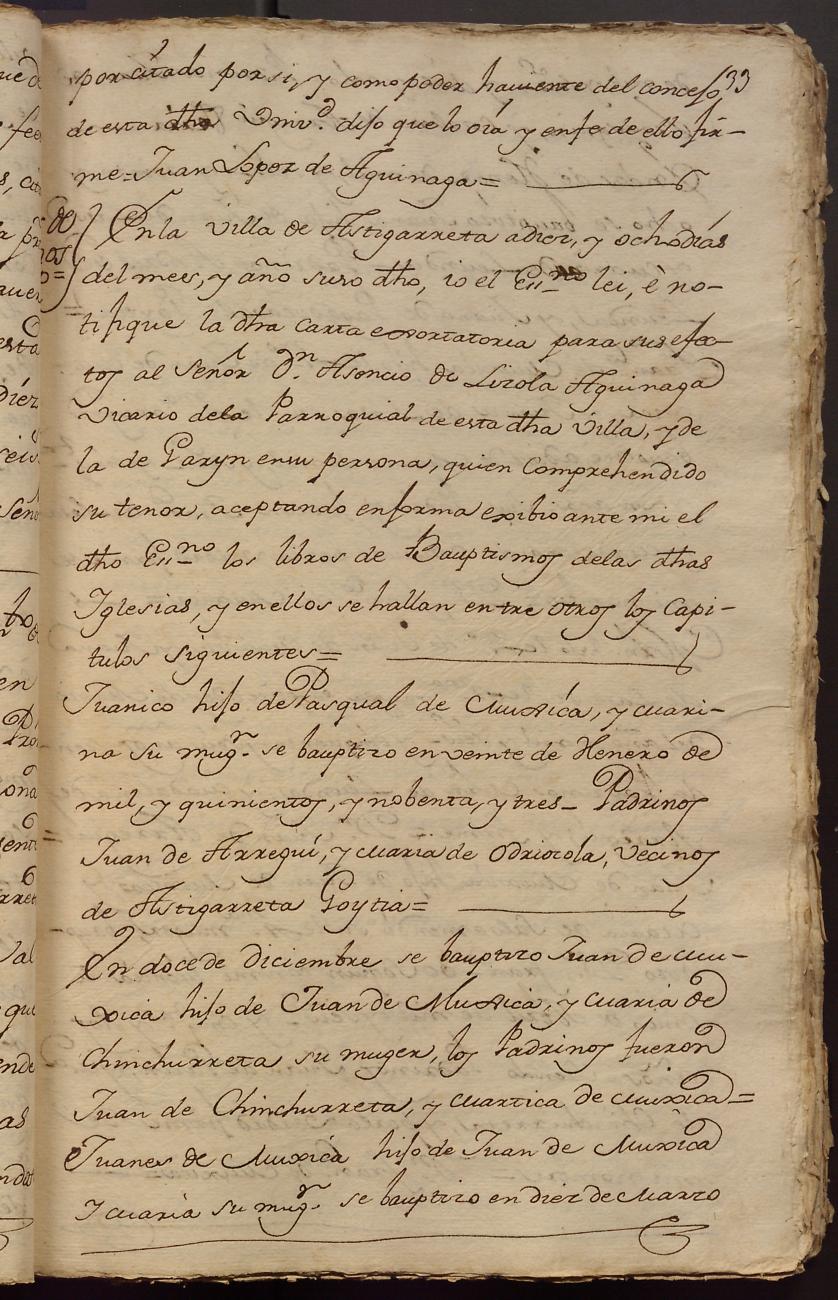 33
por citado por si, y como poder haviente del concejo
de esta dha Univ.d dijo que lo oia y en fe de ello fir-
me = Juan Lopez de Aguinaga =
En la villa de Astigarreta a diez, y ocho dias
del mes, y año suso dho, io el Ess.no lei, è no-
tifique la dha carta exortatoria para sus efec-
tos al Señor D.n Asencio de Lizola Aguinaga
Vicario de la Parroquial de esta dha Villa, y de
la de Garyn en su persona, quien Comprehendido
su tenor, aceptando en forma exibio ante mi el
dho Ess.no los libros de Bauptismos de las dhas
Iglesias, y en ellos se hallan entre otros los Capi-
tulos siguientes =
Juanico hijo de Pasqual de Muxica, y Mari-
na su mug.r se bauptizo en veinte de Henero de
mil, y quinientos, y nobenta, y tres - Padrinos
Juan de Arregui, y Maria de Odriozola, Vecinos
de Astigarreta Goytia =
En doce de diciembre se bauptizo Juan de Mu-
xica hijo de Juan de Muxica, y Maria de
Chinchurreta su muger, los Padrinos fueron
Juan de Chinchurreta, y Martica de Muxica =
Juanes de Muxica hijo de Juan de Muxica
y Maria su mug.r se bauptizo en diez de Marzo